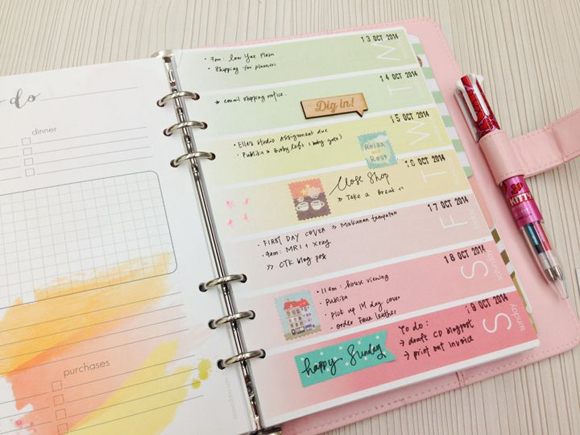 do
dinner
purchases
13 OCT 2014
M
• Shipping for planners
14 OCT 2014
T
→ email shipping notice.
Dig in!
15 OCT 2014
W
• Elles Studio Assignment due
Relax
and
Rest
16 OCT 2014
T
Close Shop
→ Take a break
17 OCT 2014
F
• FIRST DAY COVER → Makanan
• 9am: MRI + xray
>> CTK blog post
18 OCT 2014
S
• 11am: house viewing
• Publika
• Pick up 1M day cover
• order faux leather
19 OCT 2014
S
happy Sunday
To do:
→ draft CD blogpost
→ print out invoice
KITTY